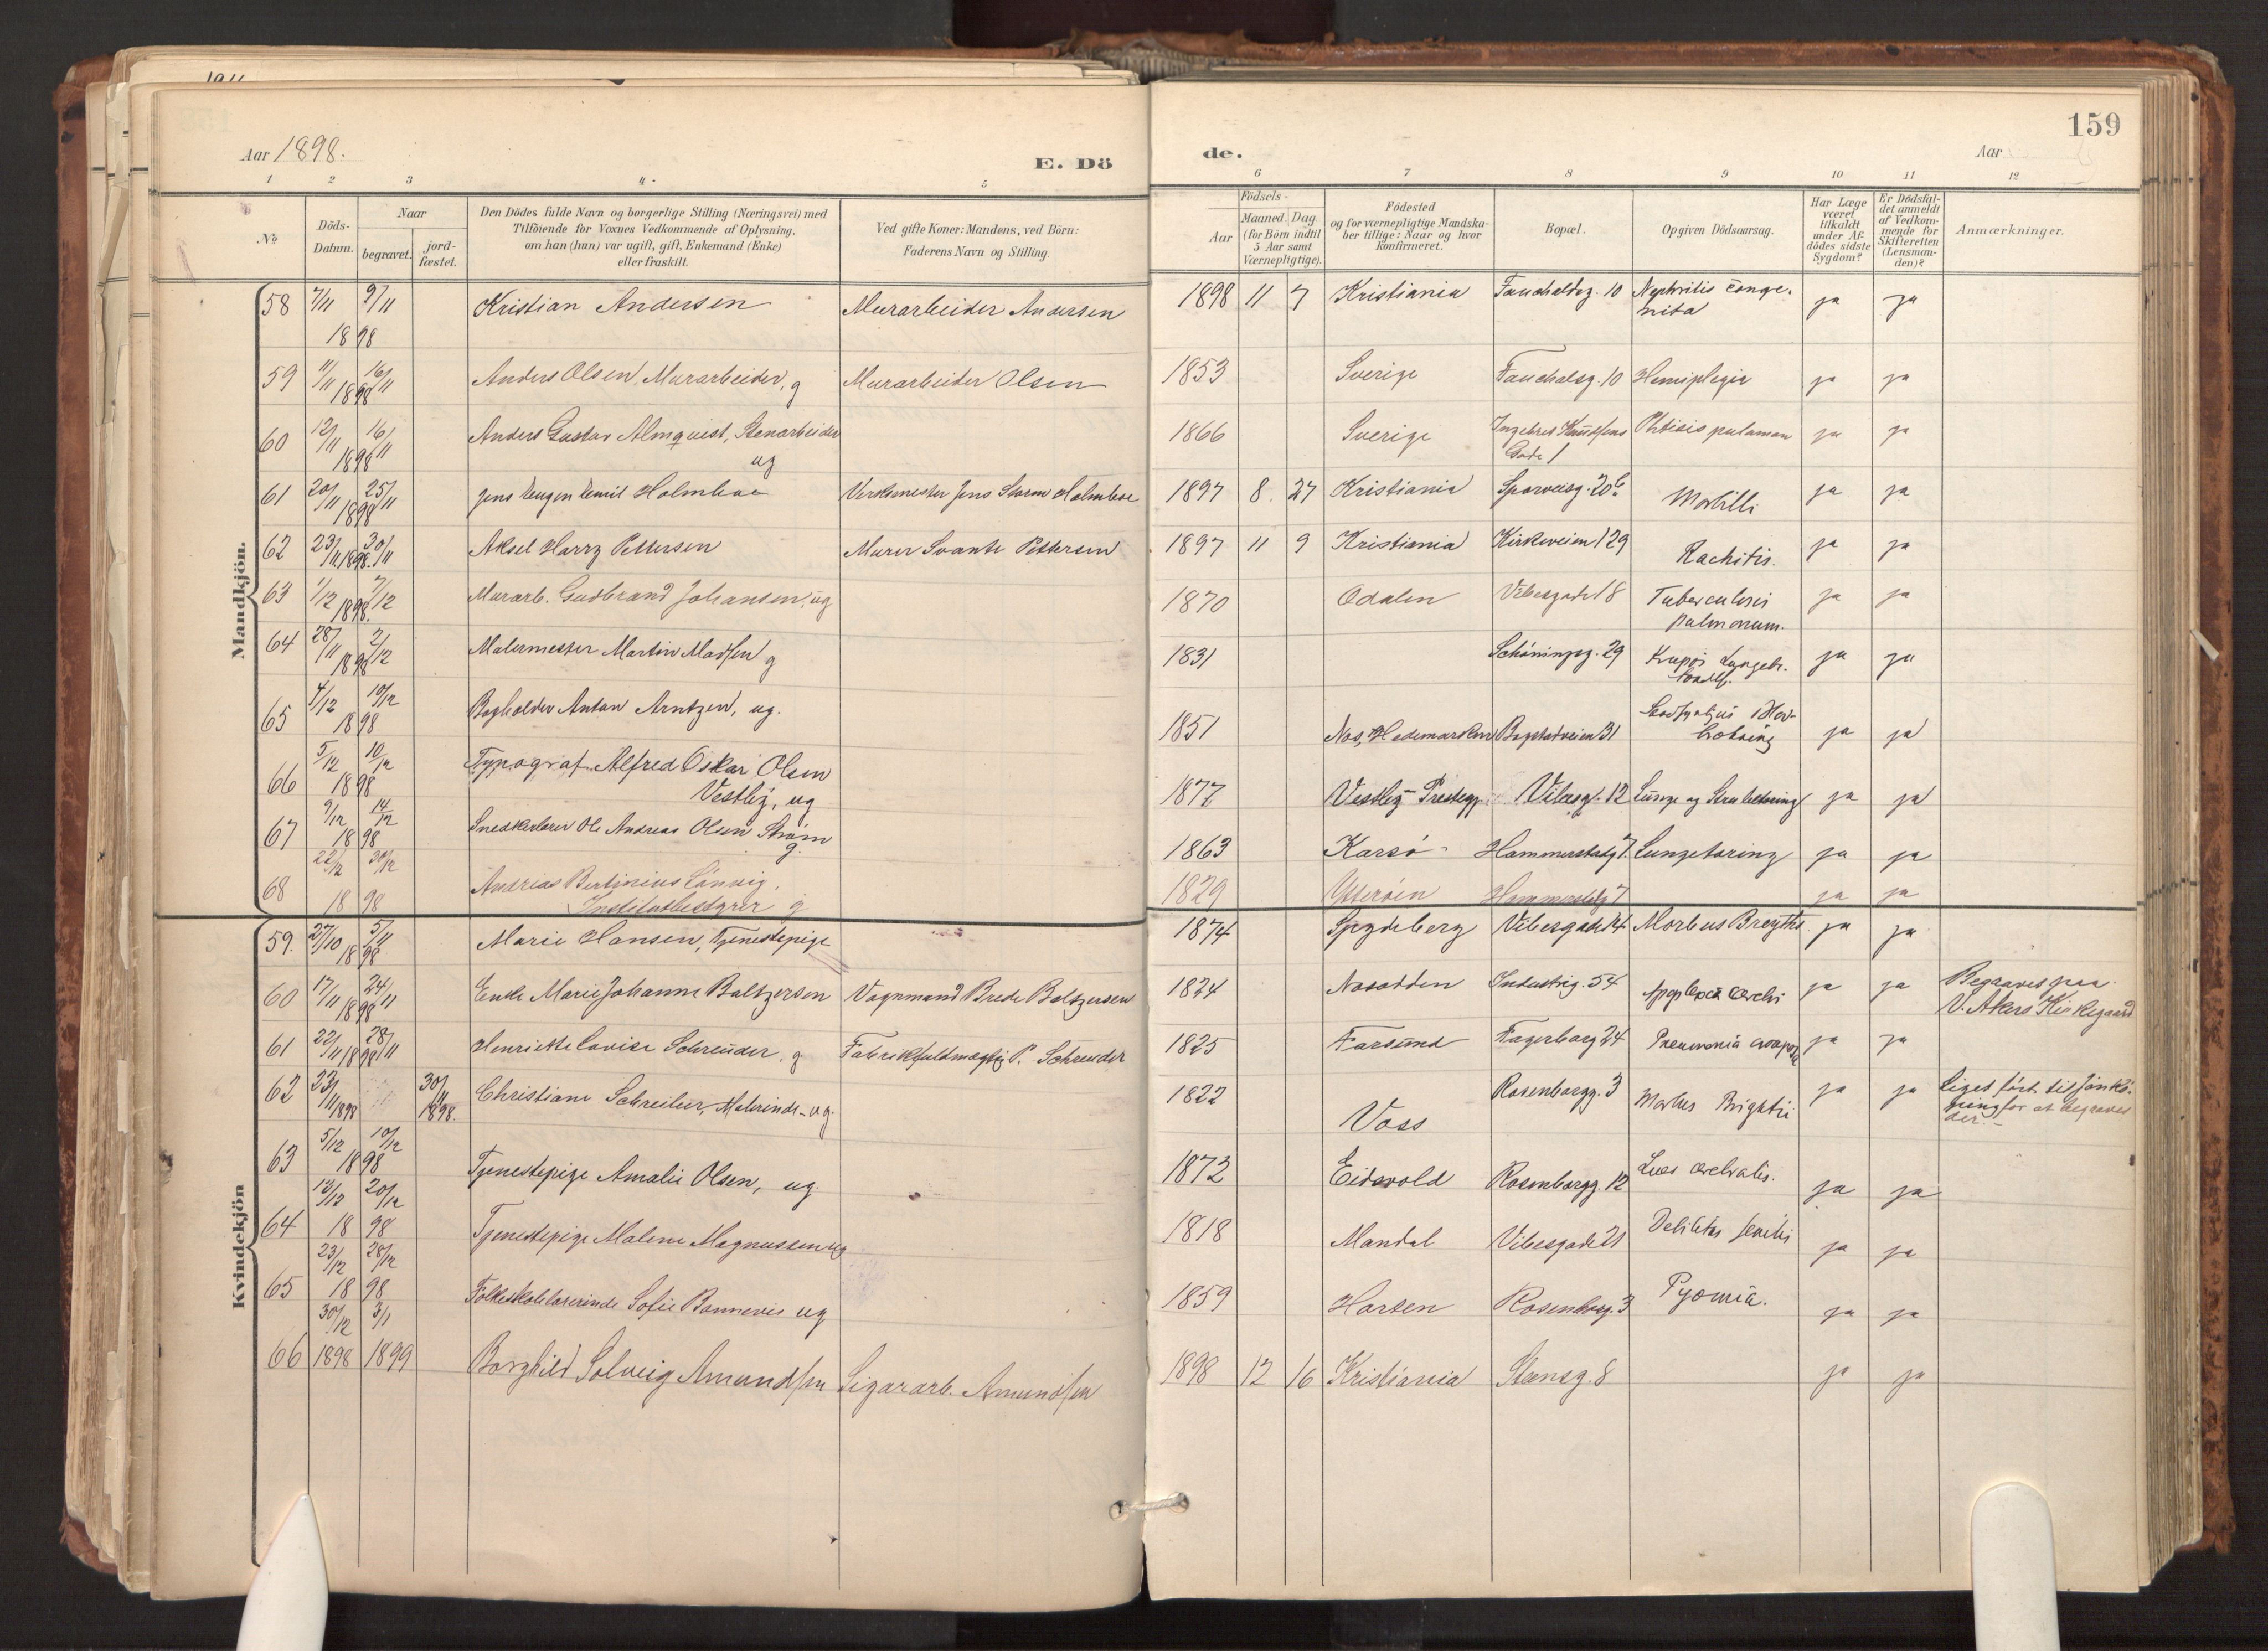 Aar 1898.
E. Dö
de.
Aar
159
1 2 3 4. 5 6 7 8 9 10 11 12
No
Döds-Datum.
Naar
begravet.
jord-fæstet.
Den Dödes fulde Navn og borgerlige Stilling (Næringsvei) med
Tilföiende for Voxnes Vedkommende af Oplysning,
om han (hun) var ugift, gift, Enkemand (Enke)
eller fraskilt.
Ved gifte Koner: Mandens, ved Börn:
Faderens Navn og Stilling.
Födsels-
Aar
Maaned. Dag.
(for Börn indtil
5 Aar samt
Værnepligtige).
Födested
og for værnepligtige Mandska-
ber tillige: Naar og hvor
konfirmeret.
Bopæl.
Opgiven Dödsaarsag.
Har Læge
været
tilkaldt
under Af-
dödes sidste
Sygdom?
Er Dödsfal-
det anmeldt
af Vedkom-
mende for
Skifteretten
(Lensman-
den)?
Anmærkninger.
Mandkjön.
58 7/11 9/11 1898 Kristian Andersen Murarbeider Andersen 1898 11 7 Kristiania Fauchaldsg. 10 Nephritis conge-
nita ja ja
59 11/11 16/11 1898 Anders Olsen, Murarbeider, g Murarbeider Olsen 1853 Sverige Fauchalsg. 10 Hemiplegia ja ja
60 12/11 16/11 1898 Anders Gustav Almquist, Stenarbeider
ug 1866 Sverige Ingebret Knudsens
Gade 1 Phtisis pulmon ja ja
61 20/11 25/11 1898 Jens Eugen Emil Holmboe Verksmester Jens Storm Holmboe 1897 8. 27 Kristiania Sporveisg. 20 Morbilli ja ja
62 23/11 30/11 1898. Aksel Harry Pettersen Murer Svante Pettersen 1897 11 9 Kristiania Kirkeveien 129 Rachitis. ja ja
63 1/12 7/12 1898. Murarb. Gudbrand Johansen, ug 1870 Odalen Vibesgade 18 Tuberculosis
pulmonum. ja ja
64 28/11 2/12 1898 Malermester Martin Madsen g 1831 Schöningsg. 29 Krupös Lungebe-
ja ja
65 4/12 10/12 1898 Bogholder Anton Arntzen, ug. 1851 Nes, Hedemarken Bogstadveien 31 ja ja
66 5/12 10/12 1898 Typograf Alfred Oskar Olsen
Vestby, ug 1877 Vestby Prestegj. Vibesg. 12 Lunge og ja ja
67 9/12 14/12 1898 Snedkerlærer Ole Andreas Olsen Strøm
g. 1863 Hammerstadg 7. Lungetæring ja ja
68 22/12 30/12 1898 Andreas Bertinius Lönvig,
Institutbestyrer g 1829 Ytterøen Hammerstadg 7 ja ja
Kvindekjön
59. 27/10 5/11 1898 Marie Hansen, Tjenestepige 1874 Spydeberg Vibesgade 14 Morbus Breigthi ja ja
60 17/11 24/11 1898 Enke Marie Johanne Baltzersen Vognmand Brede Baltzersen 1824 Nesodden Industrig. 54 Apoplexia cerebri ja ja Begraves paa
V. Akers Kirkegaard
61 22/11 28/11 1898 Henriette Lovise Schreuder, g Fabrikfuldmægtig P. Schreuder 1825 Farsund Fagerborg 24 Pneumonia crouposa ja ja
62 23/11 1898 30/11 1898. Christiane Schreiber, Malerinde - ug. 1822 Voss Rosenborgg. 3 Morbus Brightii ja ja Liget fört til Jönkö-
ping for at begraves
der. -
63 5/12 10/12 1898 Tjenestepige Amalie Olsen, ug. 1872 Eidsvold Rosenborgg. 12 Lues cerebralis. ja ja
64 13/12 20/12 1898 Tjenestepige Malene Magnussen ug 1818 Mandal Vibesgade 21 Debilitas senilis ja ja
65 23/12 28/12 1898 Folkeskolelærerinde Sofie Bonnevie ug 1859 Horten Rosenborg. 3 Pyæmia. ja ja
66 30/12 1898 3/1 1899 Borghild Solveig Amundsen Sigararb. Amundsen 1898 12 16 Kristiania Stensg. 8 ja ja